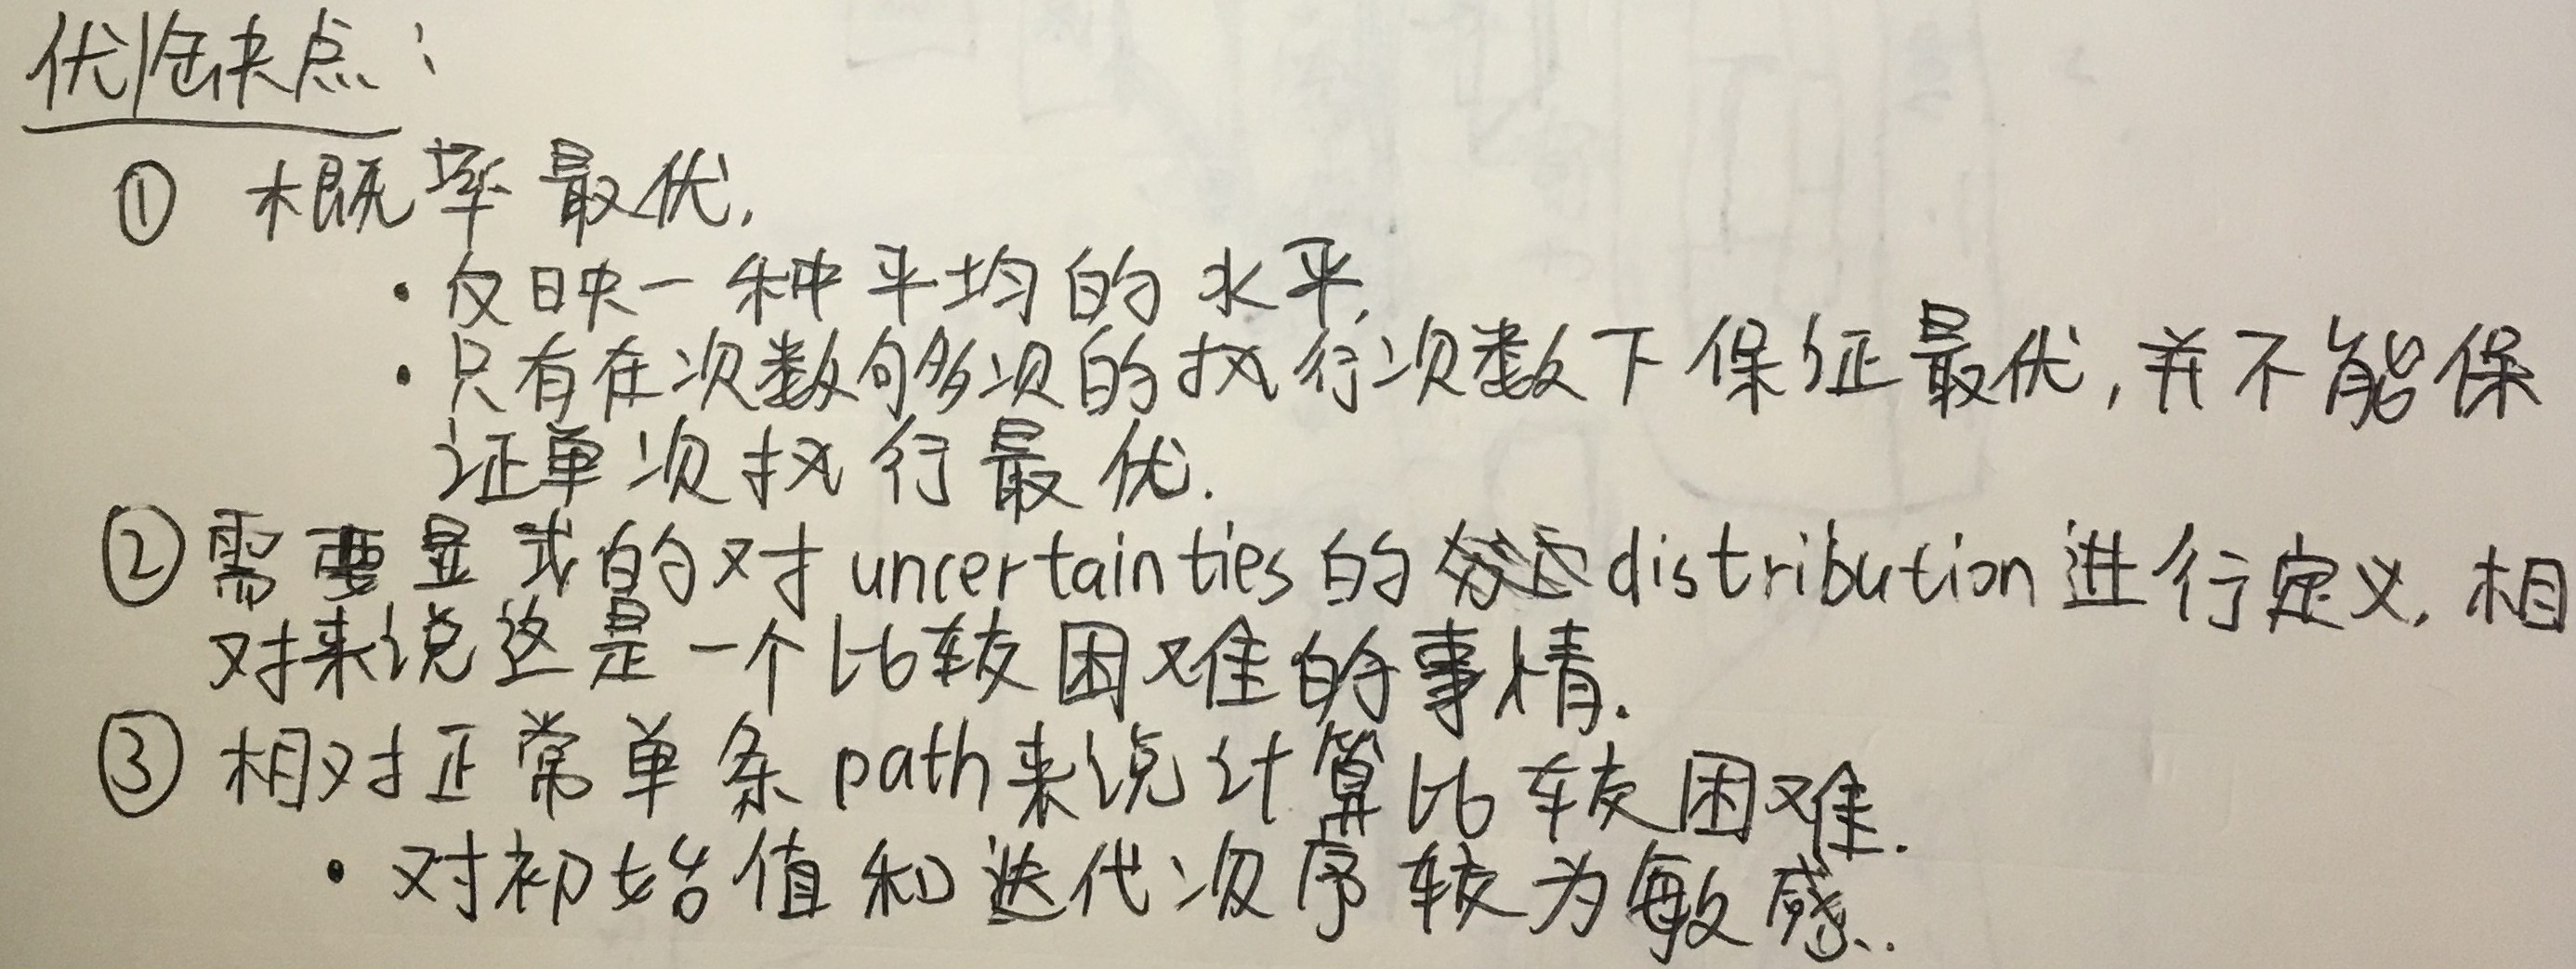 优缺点:
① 概率最优.
· 反映一种平均的水平.
· 只有在次数够多次的执行次数下保证最优,并不能保
证单次执行最优.
② 需要显式的对uncertainties的distribution进行定义.相
对来说这是一个比较困难的事情.
③ 相对正常单条path来说计算比较困难.
· 对初始值和迭代次序较为敏感.